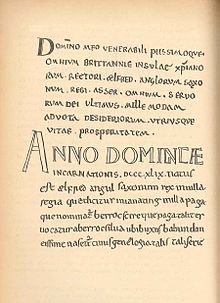 DOMINO MEO VENERABILI PIISSIMOQUE
OMNIUM BRITTANNIE INSULAE XPIANO
RUM. RECTORI. ÆLFRED. ANGLORUM SAXO
NUM. REGI. ASSER. OMNIUM. SERUO
RUM DEI ULTIMUS. MILLE MODAM
ADUOTA DESIDERIORUM. UTRIUSQUE
VITAE. PROSPERITATEM.
ANNO DOMINICAE
INCARNATIONIS. DCCC.XLIX. natus
est ælfred angul saxonum rex in uilla
regia quæ dicitur uuanating in illa pa
ga quæ nominatur berrocscire quæ paga taliter
uocatur a berroc silua ubi buxus habundan
tissime nascitur cuius genelogia tali serie